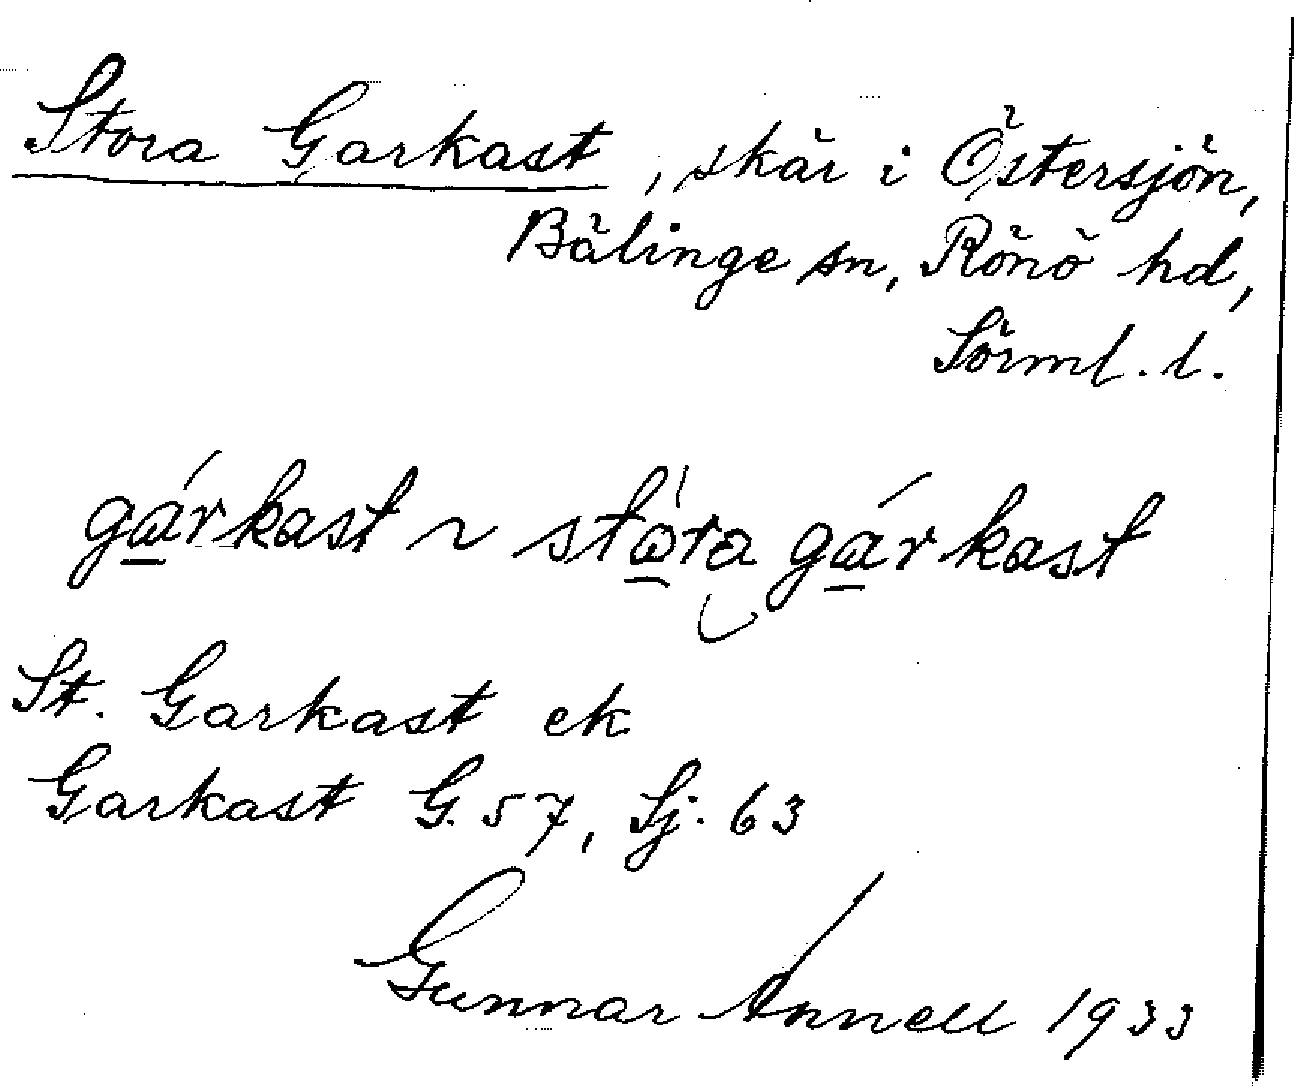 Stora Garkast, skär i Östersjön,
Bälinge sn, Rönö hd,
Sörml. l.
gárkast ~ stóra gárkast
St. Garkast ek
Garkast G. 57, Sj. 63
Gunnar Annell 1933